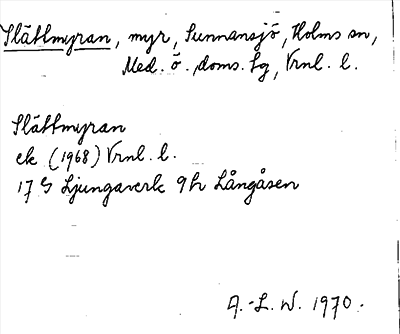 Slåttmyran, myr, Sunnansjö, Holms sn,
Med. ö. doms. sg, Vrnl. l.
Slåttmyran
ek (1968) Vrnl. l.
17 G Ljungaverk 9h Långåsen
A.-L. W. 1970.